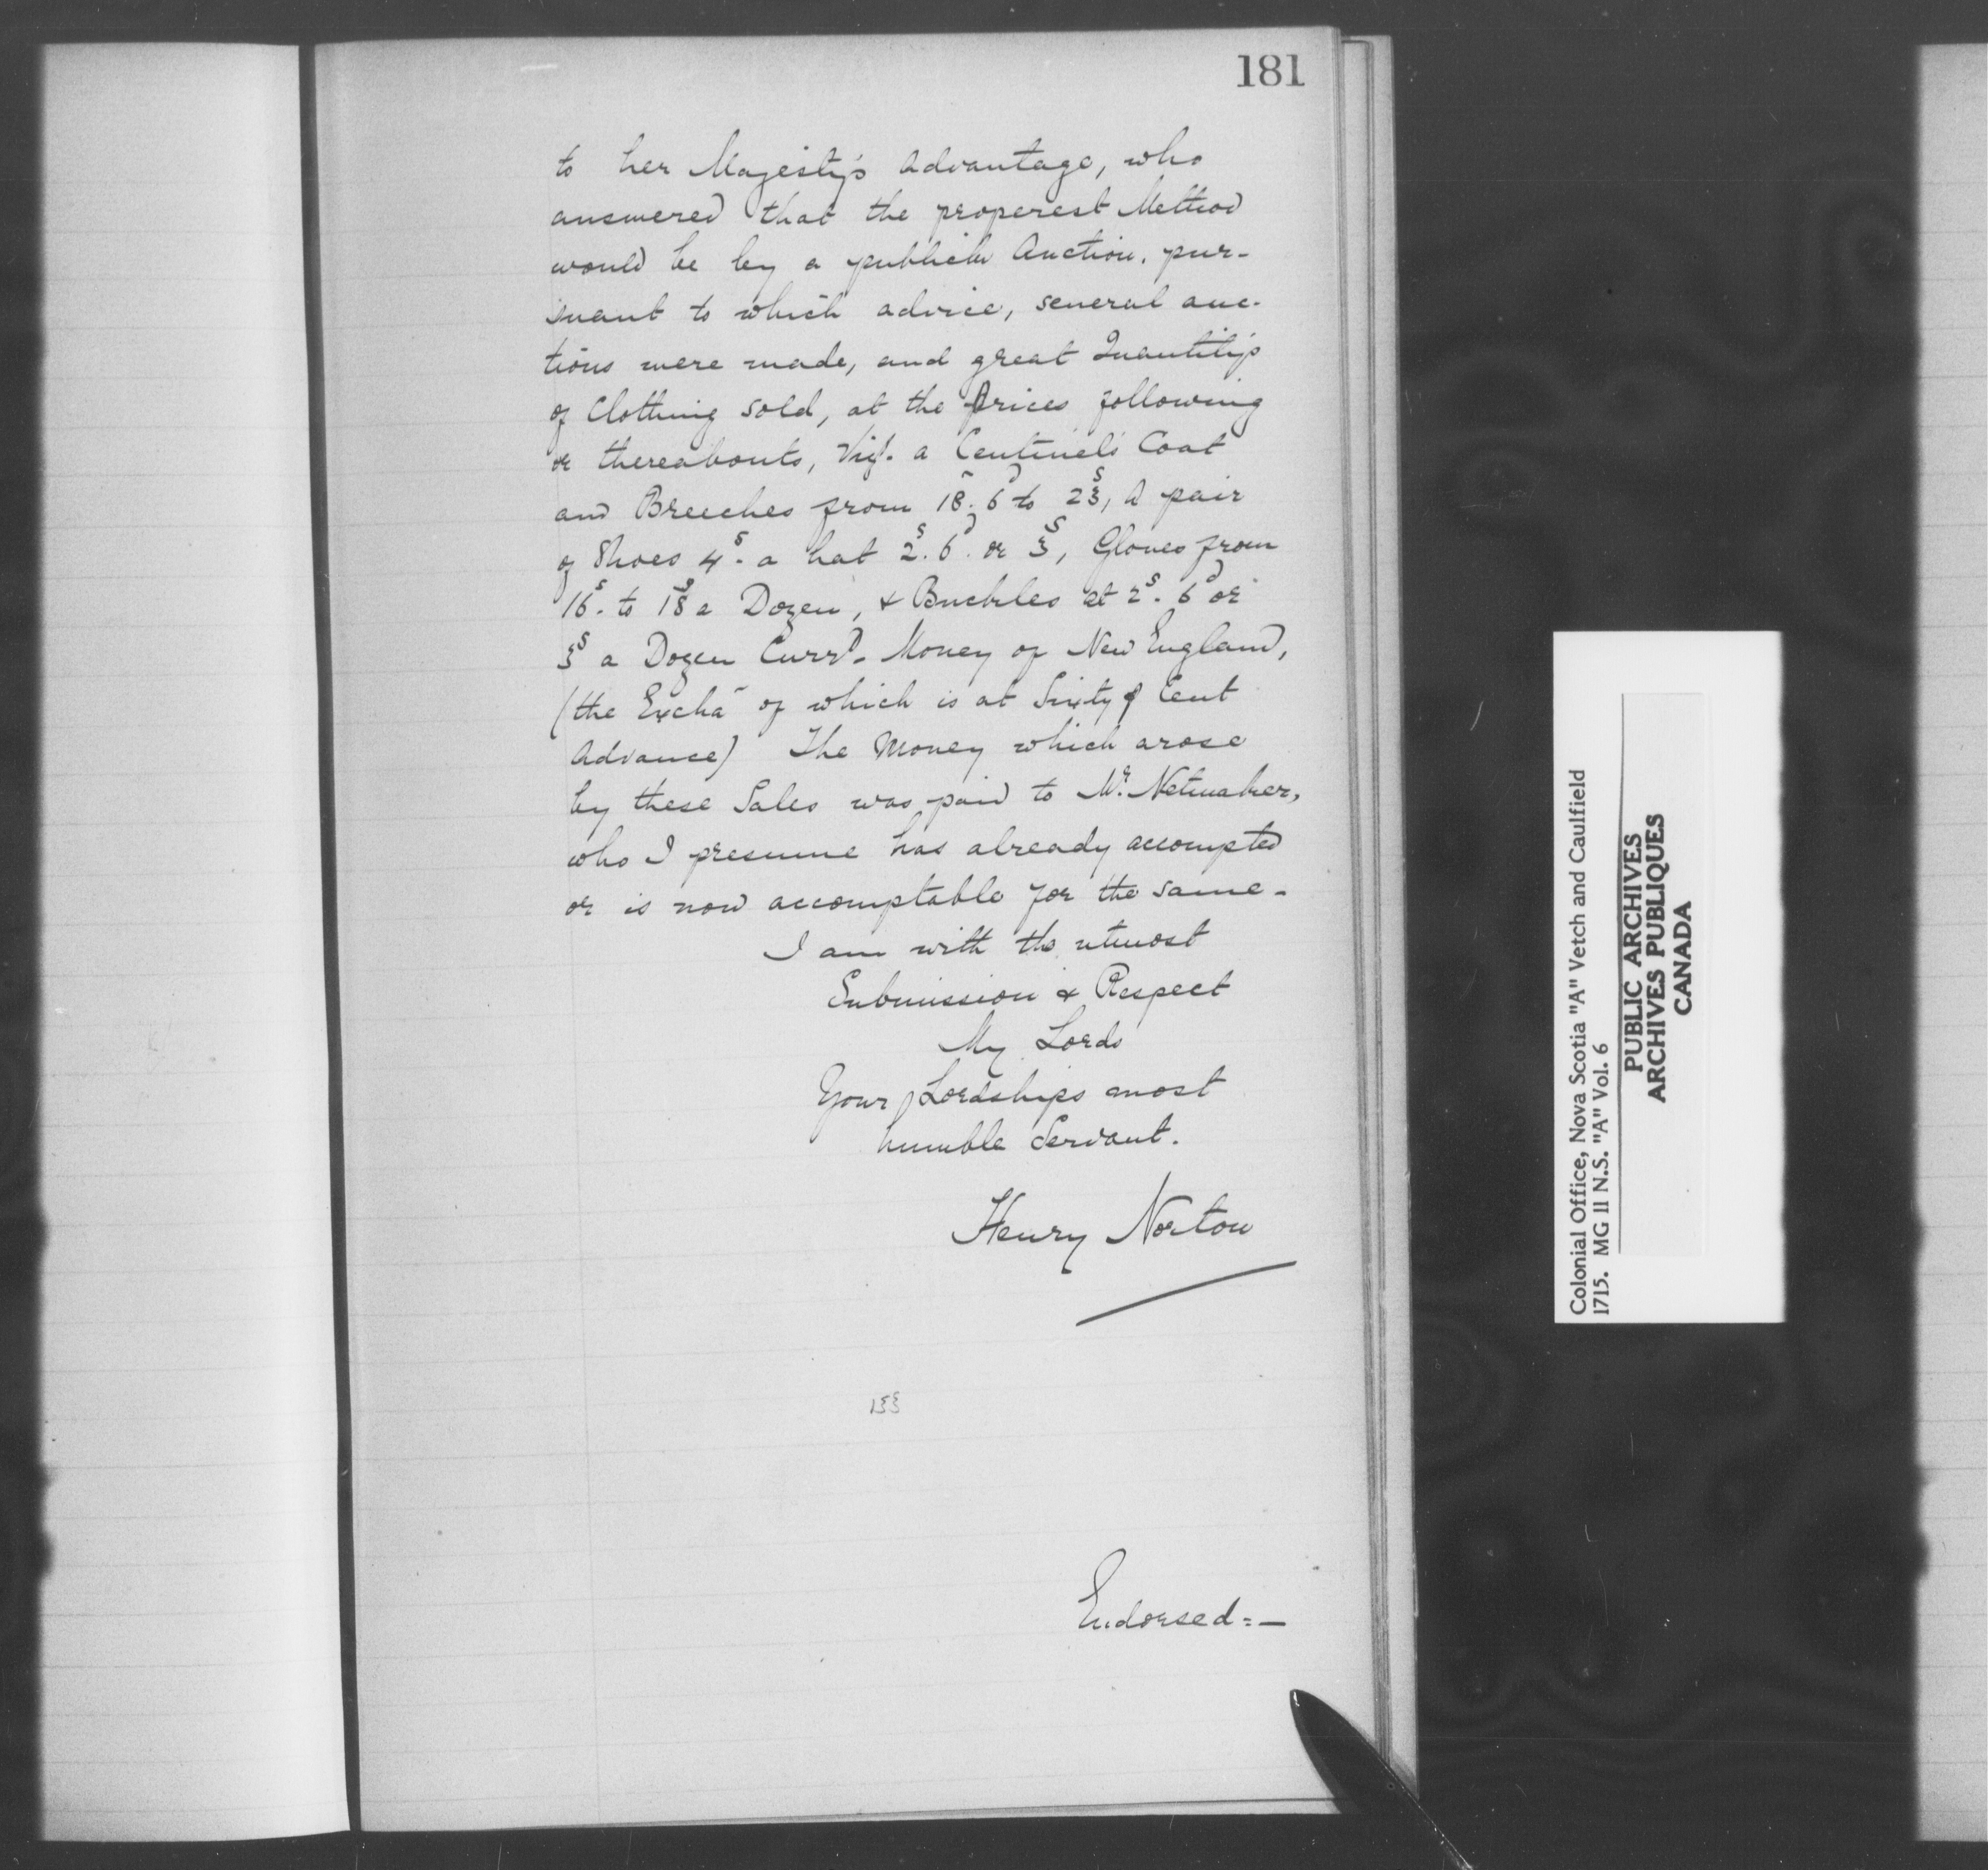 181
to her Majesty's Advantage, who
answered that the properest Method
would be by a publick Auction, pur-
suant to which advice, several auc-
tions were made, and great Quantitys
of Clothing sold, at the Prices following
or thereabouts, Vizt. a Centinels Coat
and Breeches from 18s. 6d to 23s, A pair
of Shoes 4s. a hat 2s. 6d. or 3s, Gloves from
16s. to 18s a Dozen, & Buckles at 2s. 6d or
3s a Dozen Curr. Money of New England,
(the Excha of which is at Sixty ⅌ Cent
Advance) The Money which arose
by these Sales was paid to Mr. Netmaker,
who I presume has already accompted
or is now accomptable for the same -
I am with the utmost
Submission & Respect
My Lords
Your Lordships most
humble Servant.
Henry Norton
Endorsed:-
Colonial Office, Nova Scotia "A" Vetch and Caulfield
1715. MG 11 N.S. "A" Vol. 6
PUBLIC ARCHIVES
ARCHIVES PUBLIQUES
CANADA